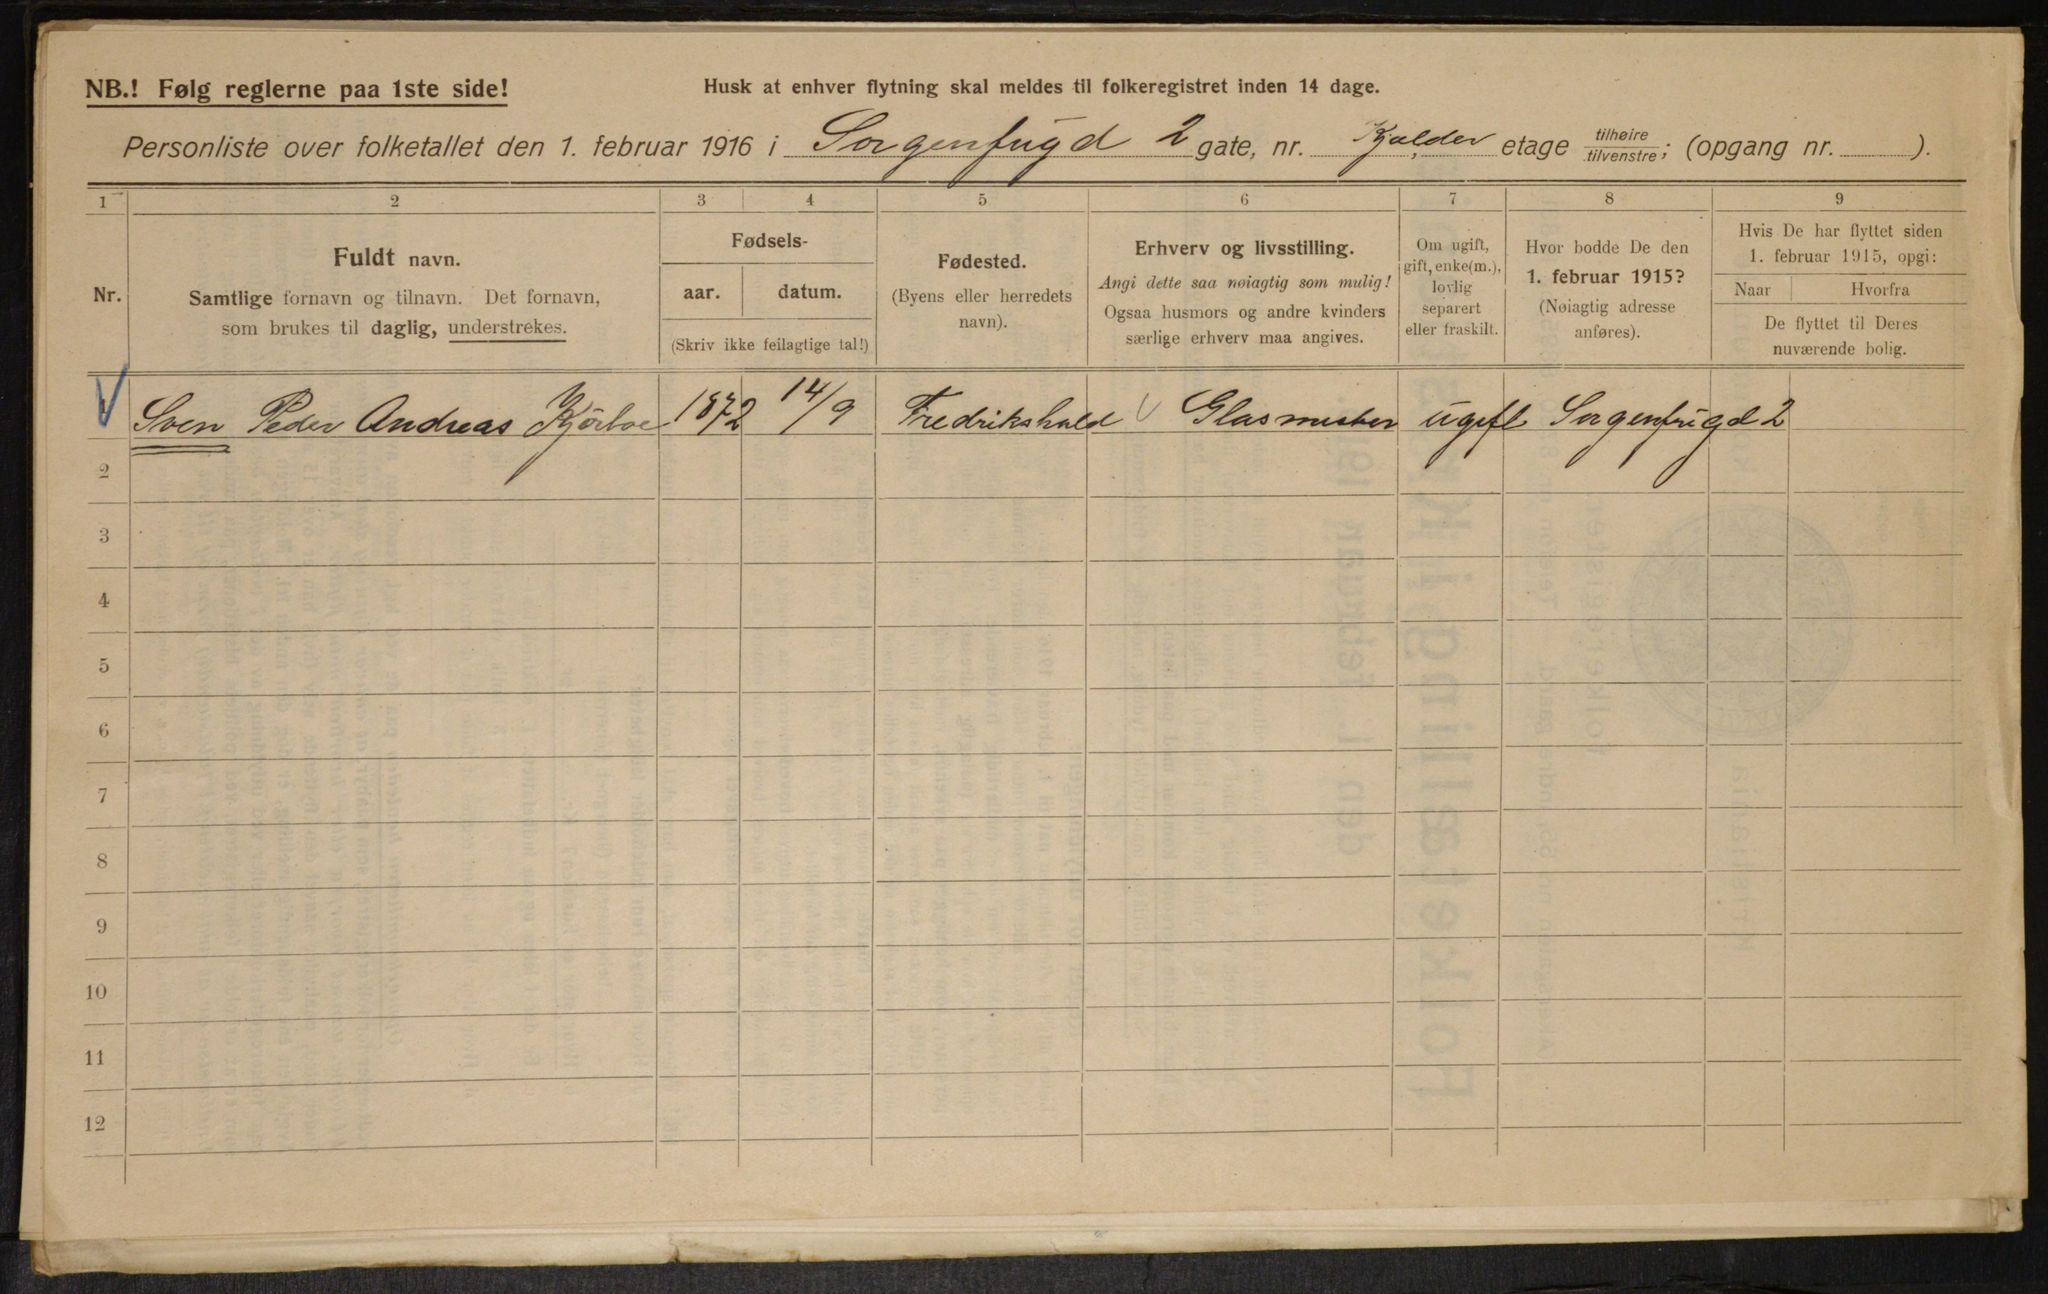 NB.! Følg reglerne paa 1ste side!
Husk at enhver flytning skal meldes til folkeregistret inden 14 dage.
Personliste over folketallet den 1. februar 1916 i Sorgenfrigd 2 gate, nr. Kjælder etage tilhøire/tilvenstre; (opgang nr. ).
1 2 3 4 5 6 7 8 9
Nr.
Fuldt navn.
Samtlige fornavn og tilnavn. Det fornavn,
som brukes til daglig, understrekes.
Fødsels-
aar. datum.
(Skriv ikke feilagtige tal!)
Fødested.
(Byens eller herredets
navn).
Erhverv og livsstilling.
Angi dette saa nøiagtig som mulig!
Ogsaa husmors og andre kvinders
særlige erhverv maa angives.
Om ugift,
gift, enke(m.),
lovlig
separert
eller fraskilt.
Hvor bodde De den
1. februar 1915?
(Nøiagtig adresse
anføres).
Hvis De har flyttet siden
1. februar 1915, opgi:
Naar Hvorfra
De flyttet til Deres
nuværende bolig.
Sven Peder Andreas Kjörboe 1872 14/9 Fredrikshald Glasmester ugift Sorgenfrigd 2
2
3
4
5
6
7
8
9
10
11
12